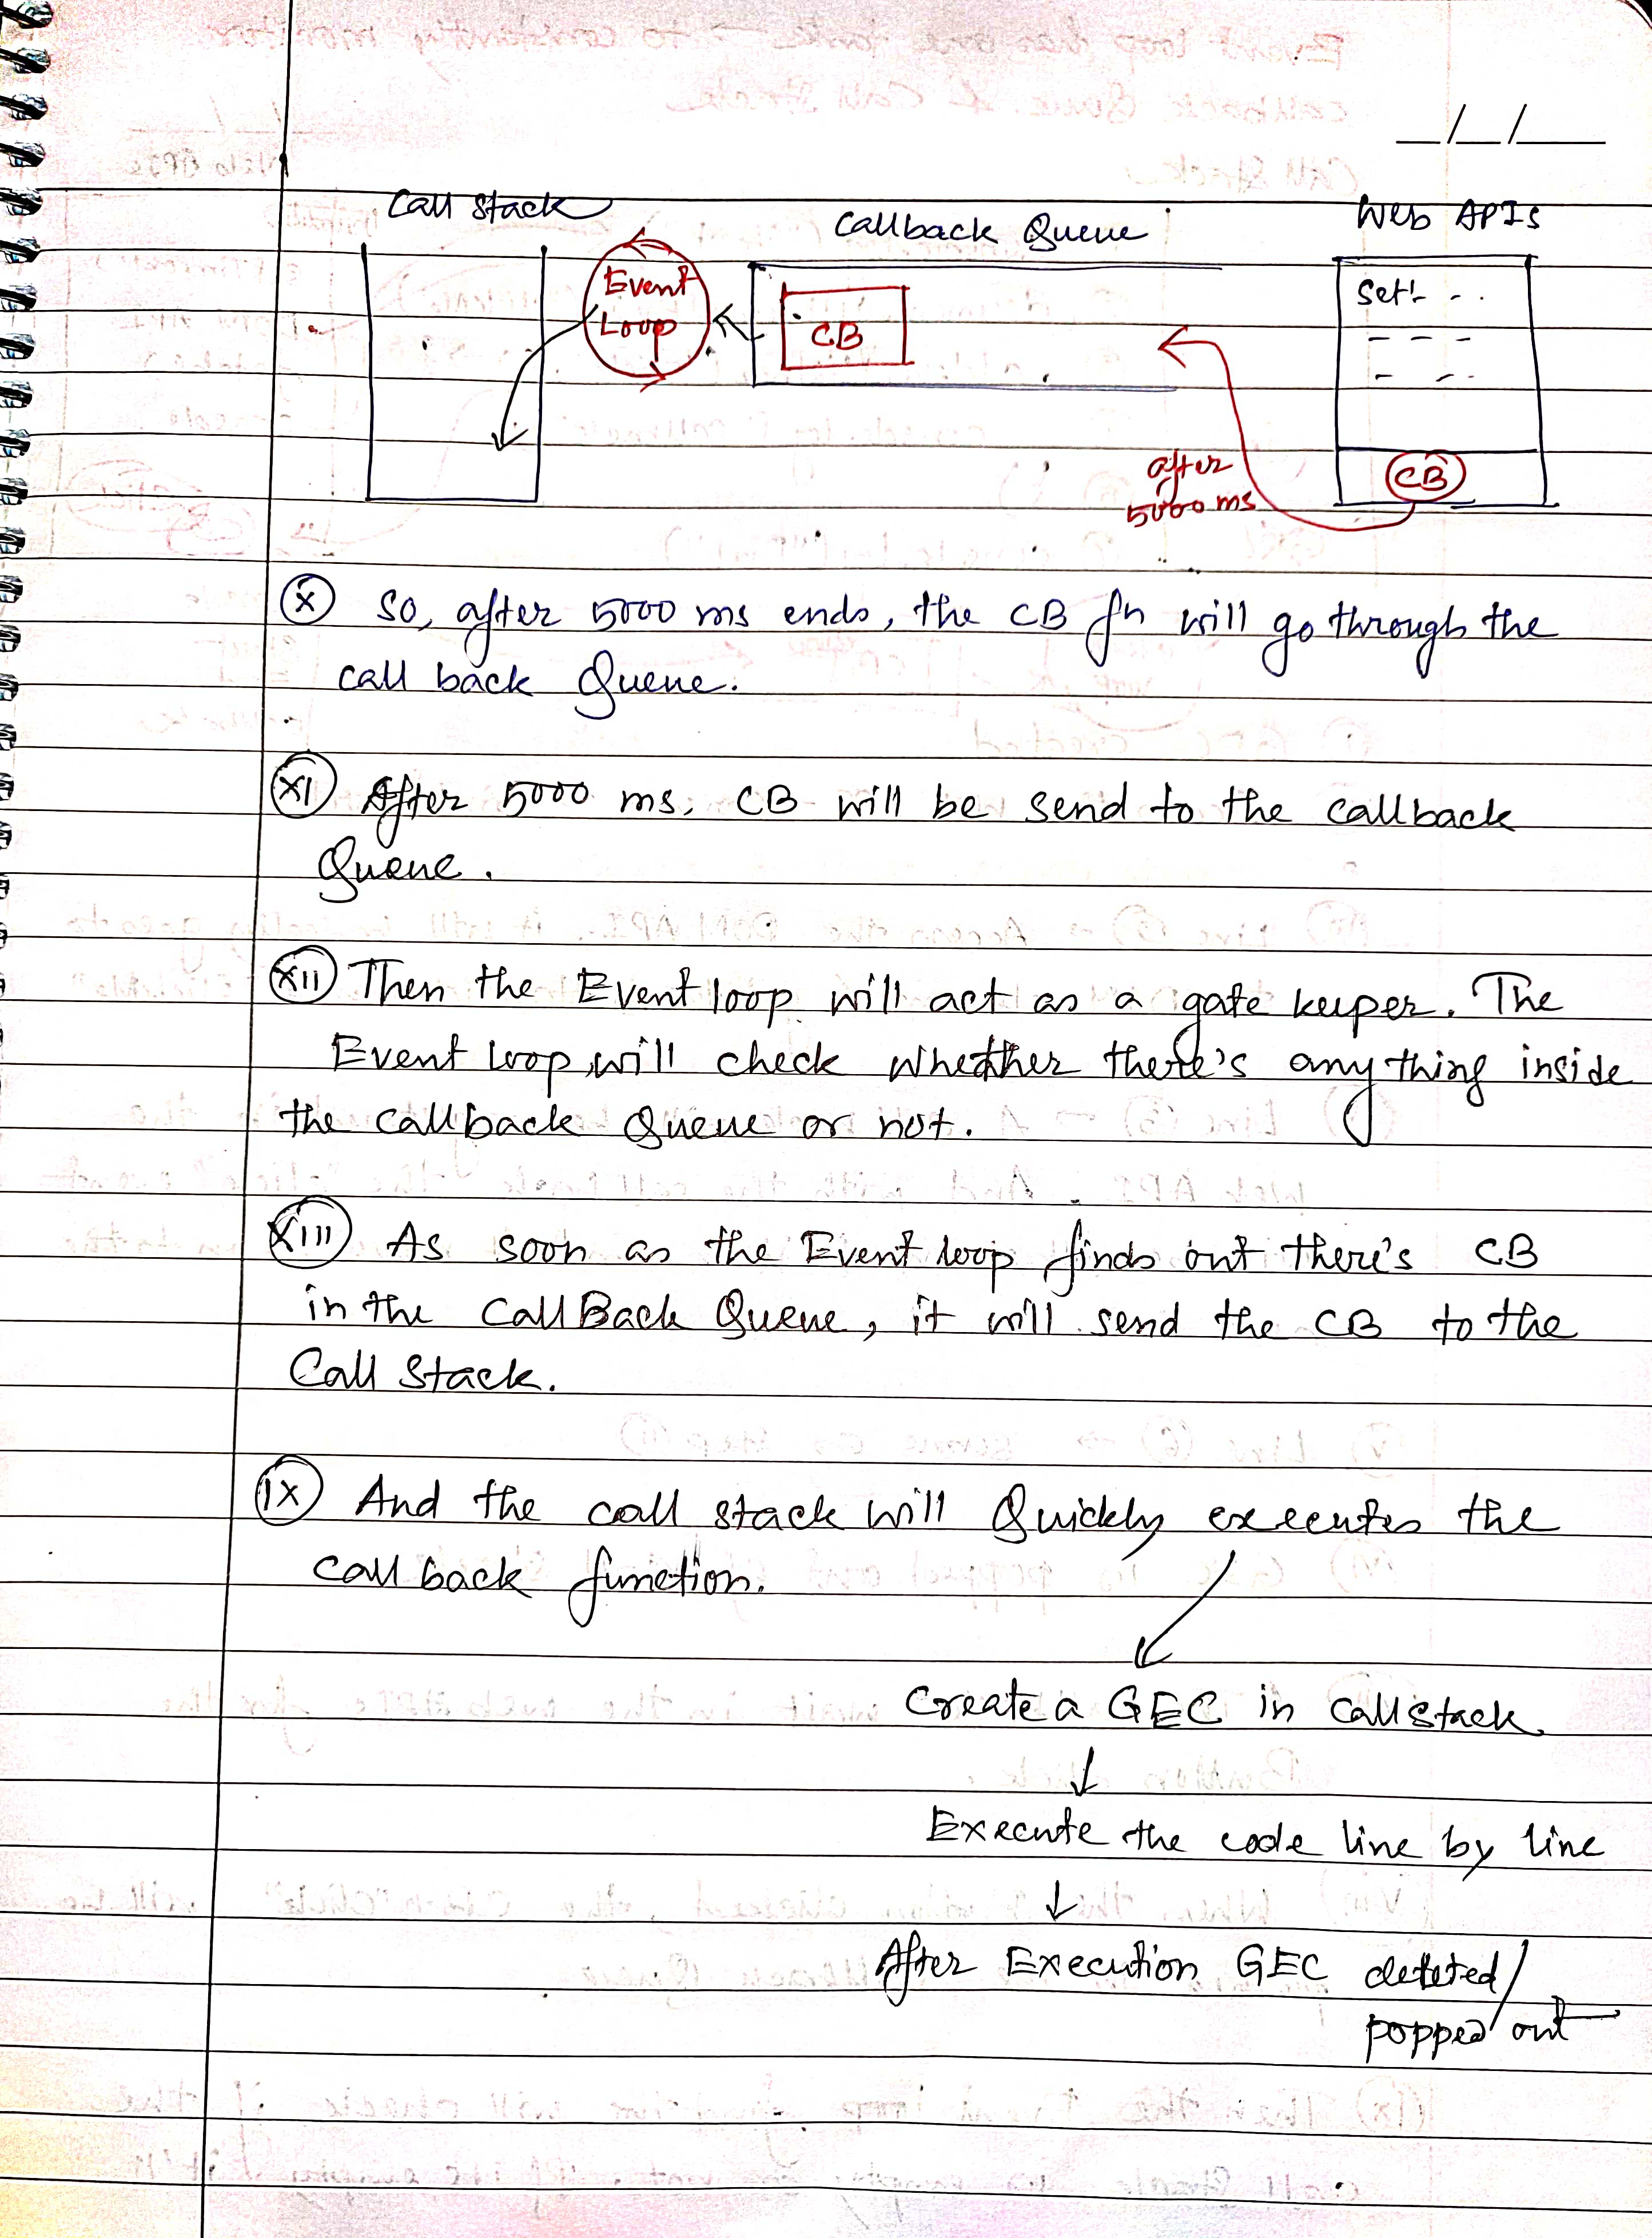 _/_/_
Call Stack
Callback Queue
Web APIs
Event
Loop
CB
Set - -
after
5000 ms
CB
(X) So, after 5000 ms ends, the CB fn will go through the
call back Queue.
(XI) After 5000 ms, CB will be send to the callback
Queue.
(XII) Then the Event loop will act as a gate keeper. The
Event loop will check whether there's any thing inside
the callback Queue or not.
(XIII) As soon as the Event loop finds out there's CB
in the CallBack Queue, it will send the CB to the
Call Stack.
(IX) And the call stack will Quickly executes the
call back function.
Create a GEC in Callstack
Execute the code line by line
After Execution GEC deleted/
popped out